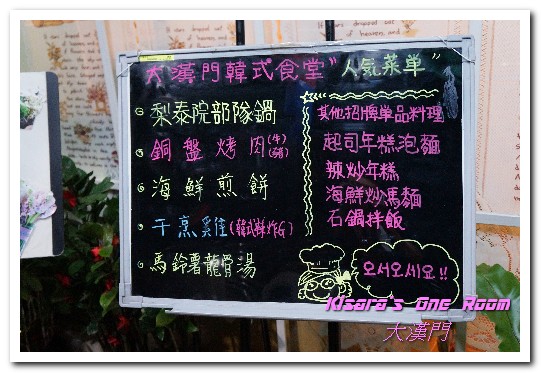 大漢門韓式食堂"人氣菜單"
梨泰院部隊鍋
銅盤烤肉(牛/豬)
海鮮煎餅
干烹雞(韓式鮮炸G)
馬鈴薯龍骨湯
其他招牌單品料理
起司年糕泡麵
辣炒年糕
海鮮炒馬麵
石鍋拌飯
오서오세요!!
Kisara's One Room
大漢門